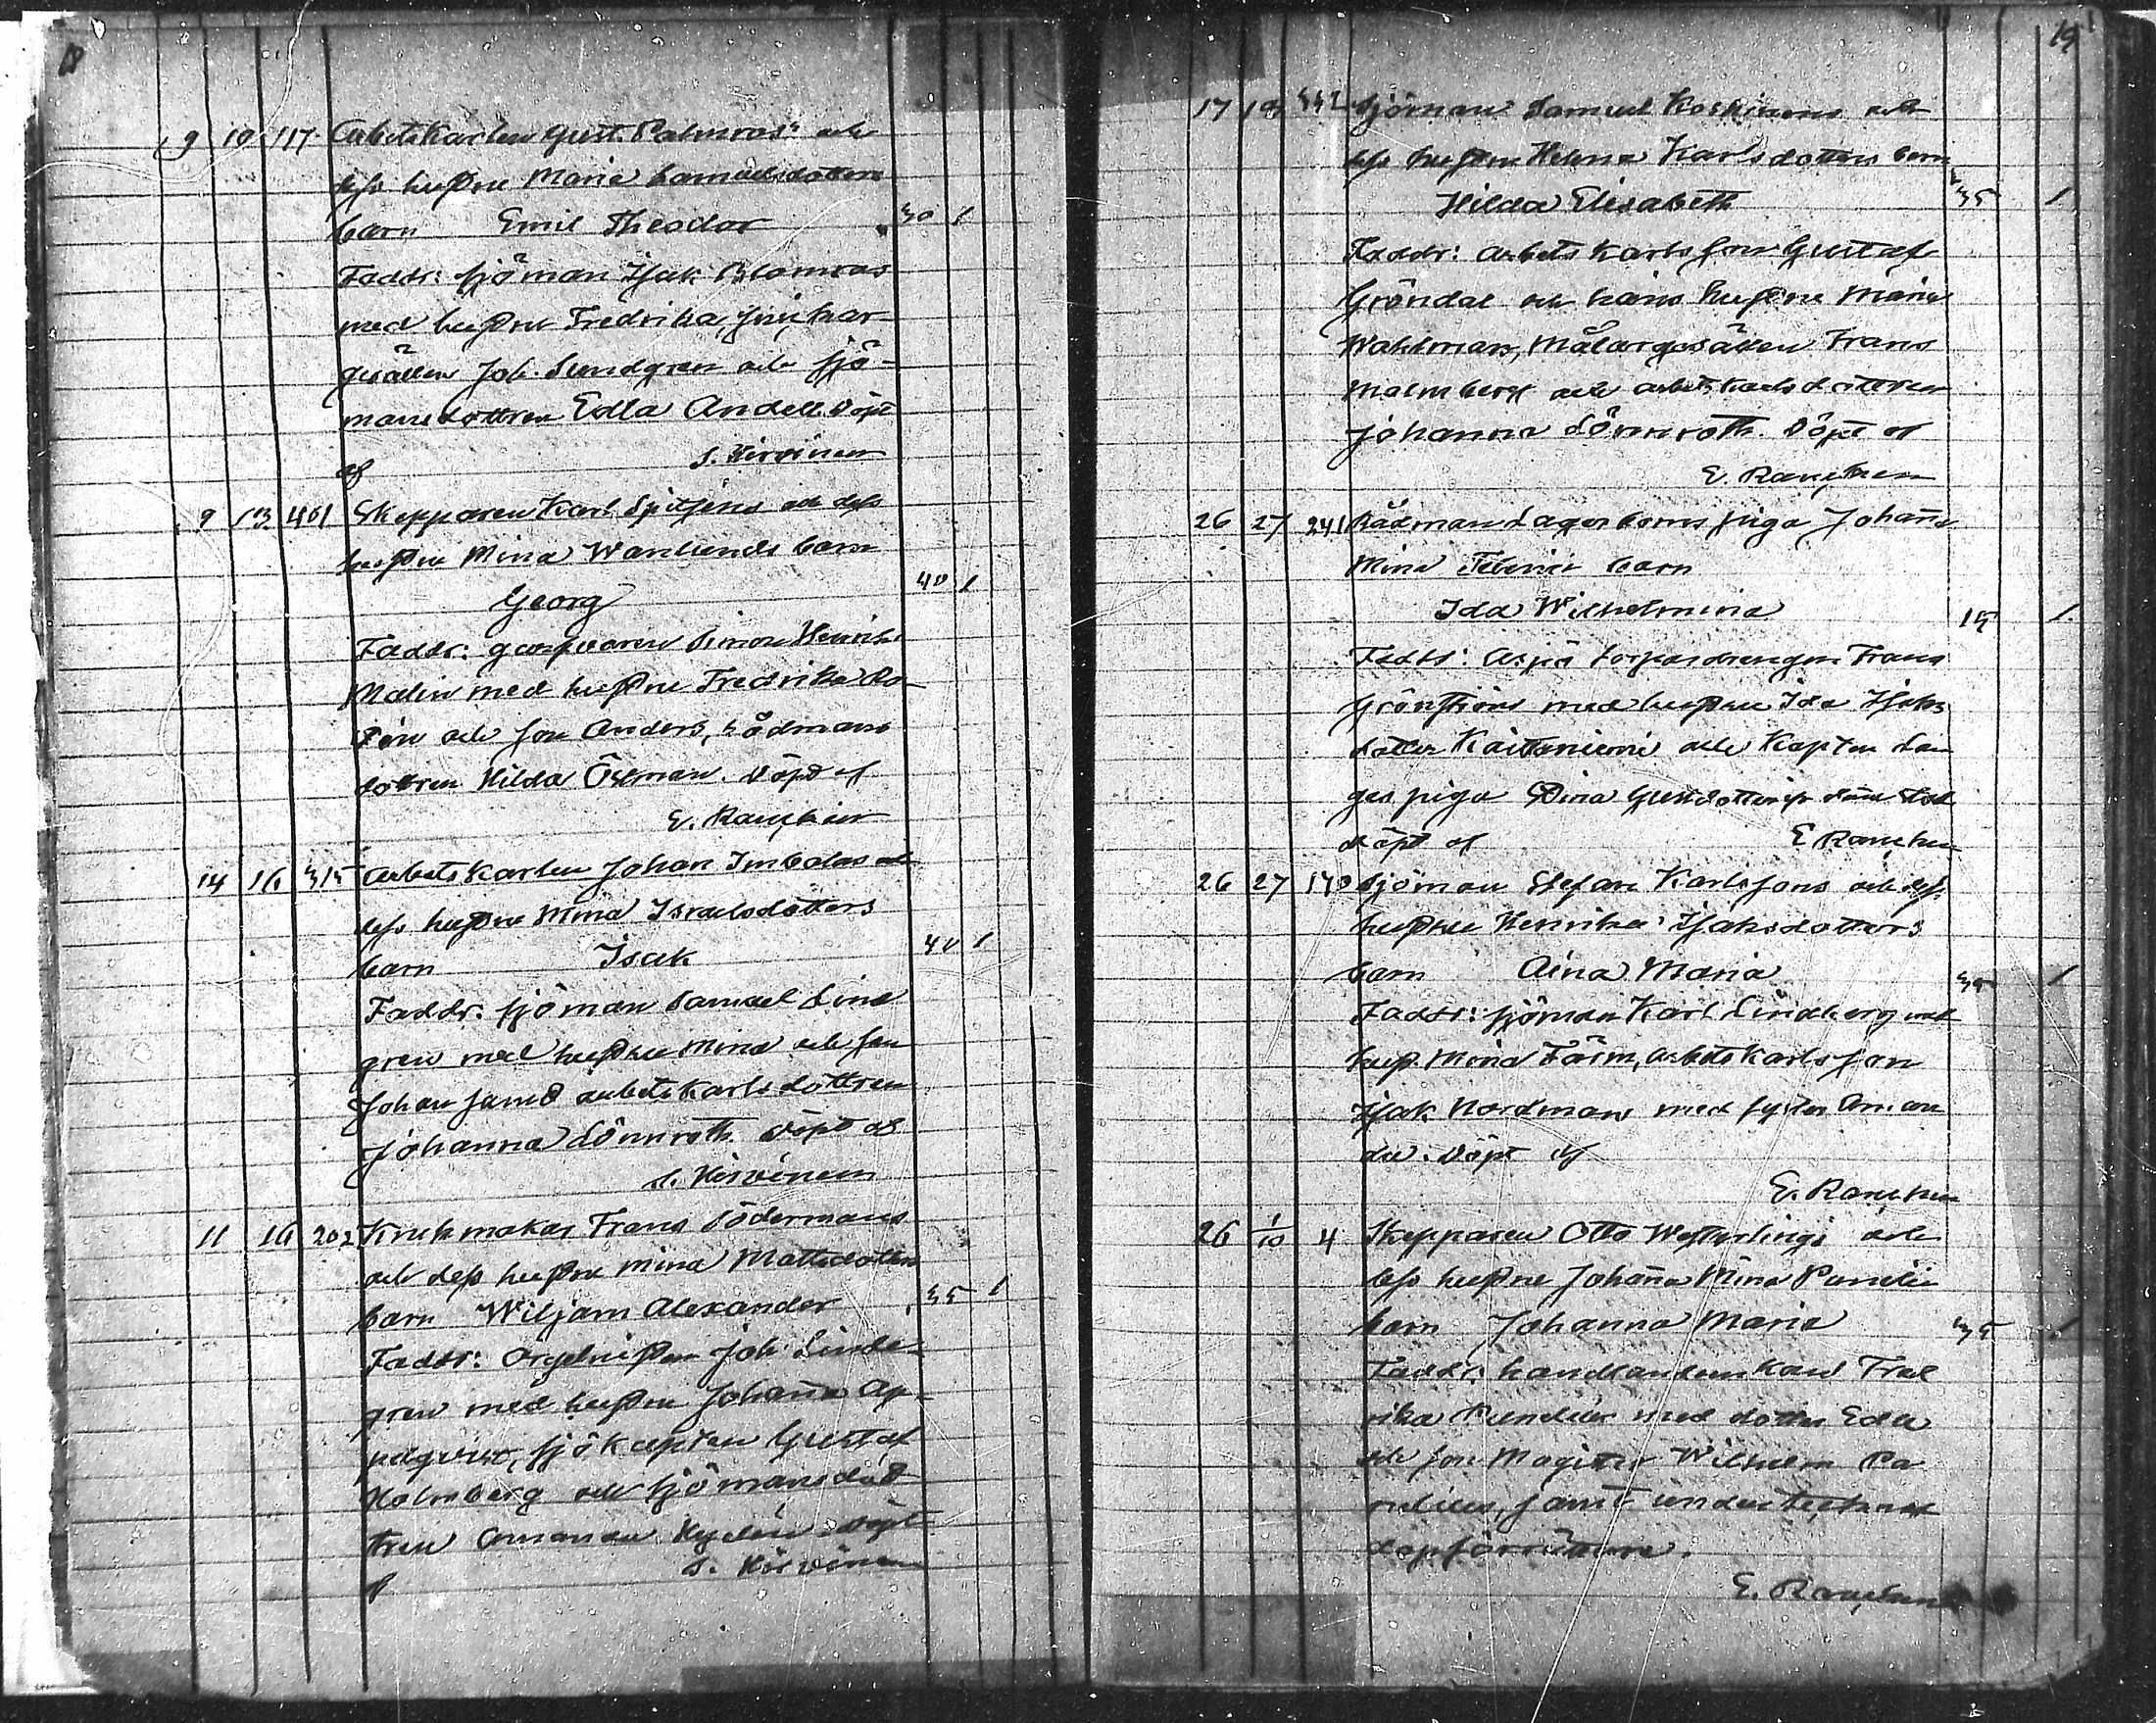 18
9 10 117 Arbetskarlen Gust. Palmros' och
dess hustru Maria Samuelsdotters
barn Emil Theodor 30 1
Faddr: sjöman Isak Blomros
med hustru Fredrika,
gesällen Joh. Sundgren och sjö-
mansdottren Edla Andell. Döpt
af S. Hirvinen
9 13 461 Skepparen Karl Spitsens och dess
hustru Mina Warelunds barn
Georg 40 1
Faddr: garfvaren Simon Henrik
Malin med hustru Fredrika Ro-
och son Anders, rådmans
dottren Hilda Öhman. Döpt af
E. Rancken
14 16 315 Arbetskarlen Johan Imbolas och
dess hustru Mina Israelsdotters
barn Isak 40 1
Faddr: sjöman Samuel Lind
gren med hustru Mina och son
Johan samt arbetskarlsdottren
Johanna Lönnroth. Döpt af
S. Hirvinen
11 16 202 Krukmakar Frans Södermans
och dess hustru Mina Mattsdotters
barn Wiljam Alexander 35 1
Faddr: Orgelnisten Joh. Linde-
gren med hustru Johanna Ap-
pelqvist, sjökapten Gustaf
Holmberg och sjömansdot
tren Amanda Hydén. Döpt
af S. Hirvinen
19
17 19 442 Sjöman Samuel Koskinens och
dess hustru Helena Karlsdotters barn
Hilda Elisabeth 35 1
Faddr: arbetskarlsson Gustaf
Gröndal och hans hustru Maria
Wahlman, Målargesällen Frans
Malmberg och arbetskarlsdottren
Johanna Lönnroth. Döpt af
E. Rancken
26 27 241 Rådman Lagerboms piga Johanna
Mina barn
Ida Wilhelmina 19 1
Faddr: torpardrengen Frans
Grönstrõm med hustru Ida Isaks
dotter Kaittaniemi och Kapten Lan
ges piga Gustdotter
döpt af E Rancken
26 27 170 Sjöman Stefan Karlssons och dess
hustru Henrika Isaksdotters
barn Aina Maria 35 1
Faddr: sjöman Karl Lindberg med
hust. Mina Färm, arbetskarlsson
Isak Nordman med syster Aman
da. Döpt af
E. Rancken
26 1/10 4 Skepparen Otto Westerlings och
dess hustru Johanna Mina
barn Johanna Maria 35 1
Faddr: handlandeenkan Fred
rika med dotter Eda
och son Magister Wilhelm
samt undertecknad
dopförrättare.
E. Rancken